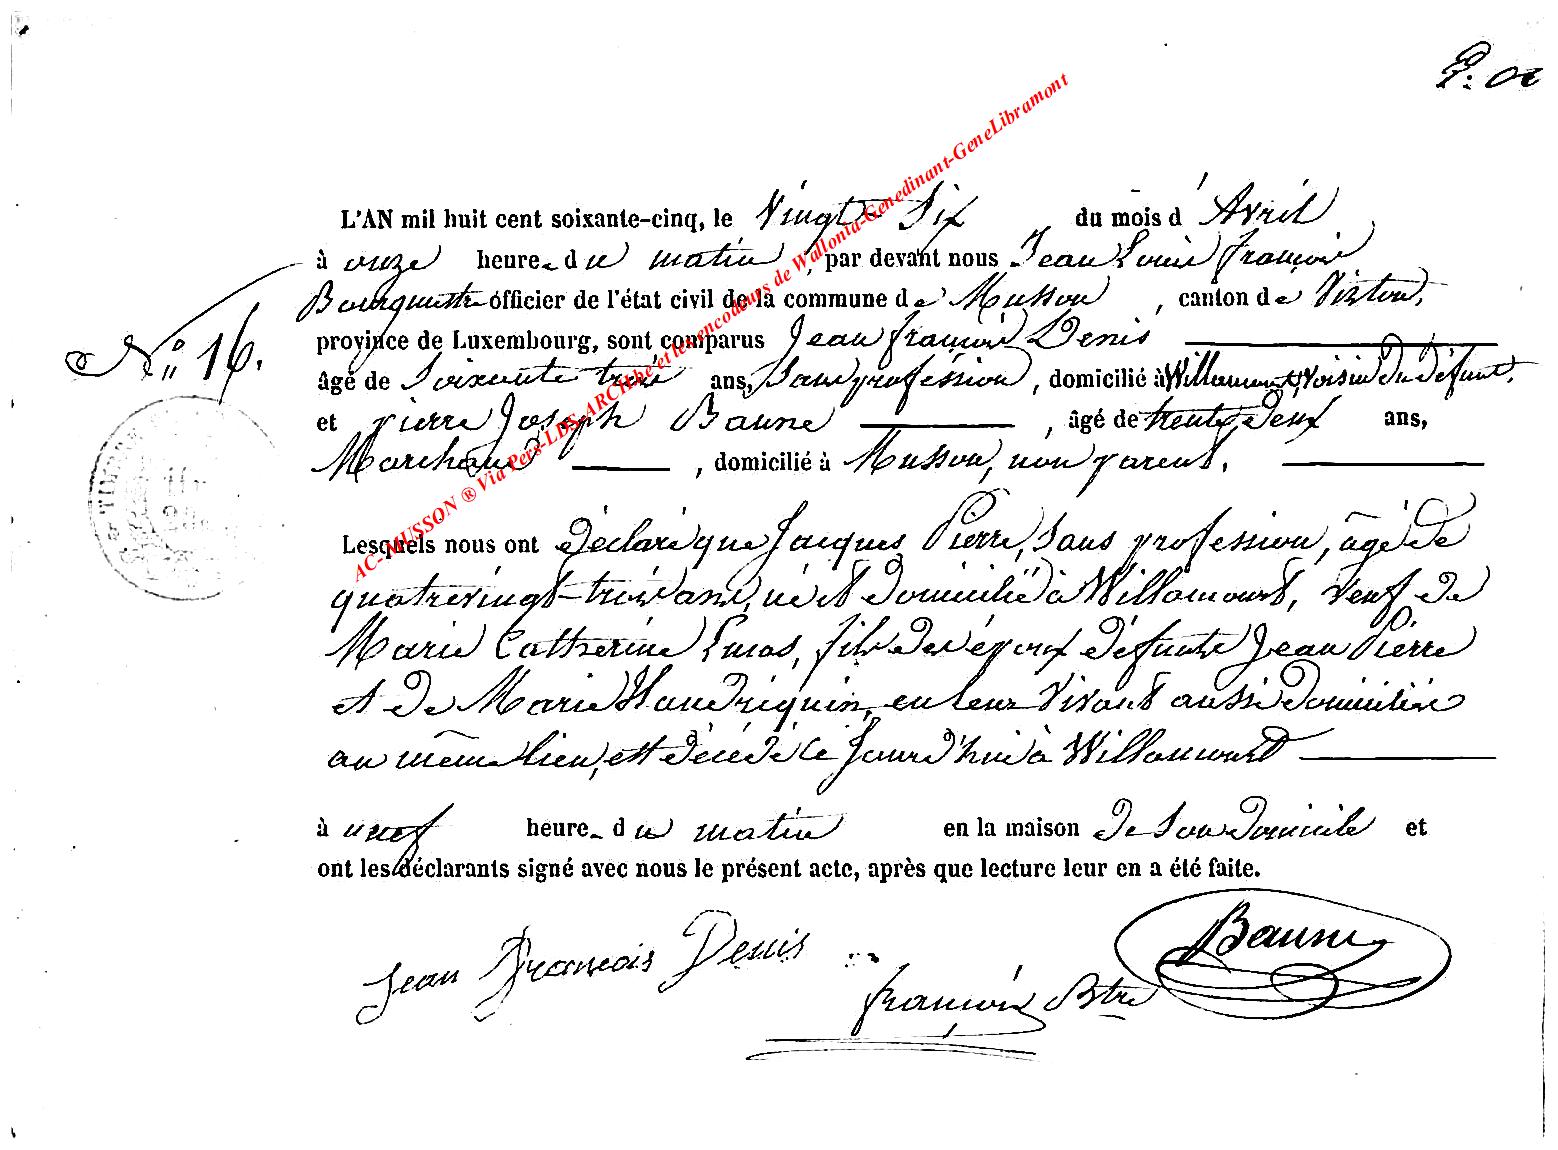 L'AN mil huit cent soixante-cinq, le Vingt Six du mois d' Avril
à onze heures du matin, par devant nous Jean Louis françois
Bourguette officier de l'état civil de la commune de Musson, canton de Virton,
N° 16. province de Luxembourg, sont comparus Jean françois Denis
âgé de Soixante trois ans, Sans profession, domicilié à Willancourt, Voisin du défunt.
et Pierre Joseph Baune, âgé de trente deux ans,
Marchand, domicilié à Musson, non parent.
Lesquels nous ont déclaré que Jacques Pierre, Sans profession, âgé de
quatrevingt-trois ans, né et domicilié à Willancourt, Veuf de
Marie Catherine Lucas, fils des époux défunts Jean Pierre
et de Marie Haudriquin, en leur Vivant aussi domiciliés
au même lieu, est décédé ce Jourd'hui à Willancourt
à neuf heures du matin en la maison de Son domicile et
ont les déclarants signé avec nous le présent acte, après que lecture leur en a été faite.
Jean François Denis
Baune
françois Btre
AC-MUSSON ® Via Pers-LDS-ARCH.be et les encodeurs de Wallonia-Genedinant-GeneLibramont